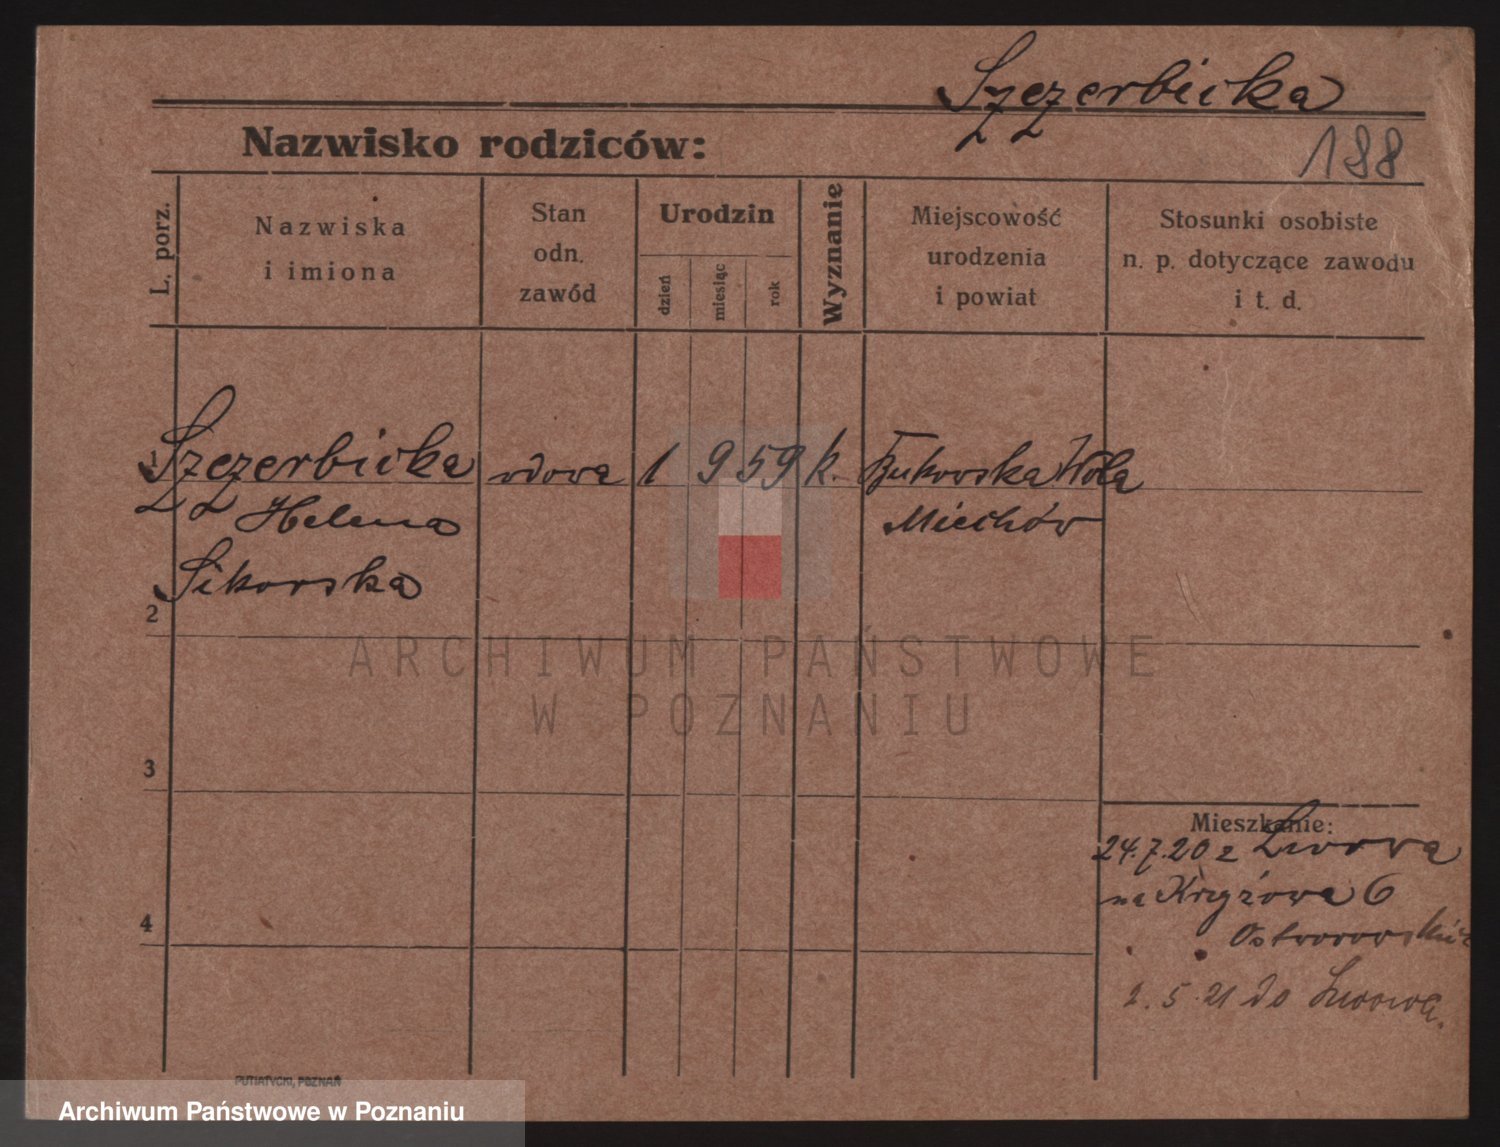 Szczerbicka
Nazwisko rodziców:
188
L. porz.
Nazwiska
i imiona
Stan
odn.
zawód
Urodzin
dzień
miesiąc
rok
Wyznanie
Miejscowość
urodzenia
i powiat
Stosunki osobiste
n. p. dotyczące zawodu
i t. d.
1
Szczerbicka wdowa 1 9 59 k. Bukowska Wola
Helena Miechów
Sikorska
2
ARCHIWUM PAŃSTWOWE
W POZNANIU
3
Mieszkanie:
24.7.20 z Lwowa
na Krzyżowa 6
4
2.5.21 do Lwowa.
PUTIATYCKI, POZNAŃ
Archiwum Państwowe w Poznaniu